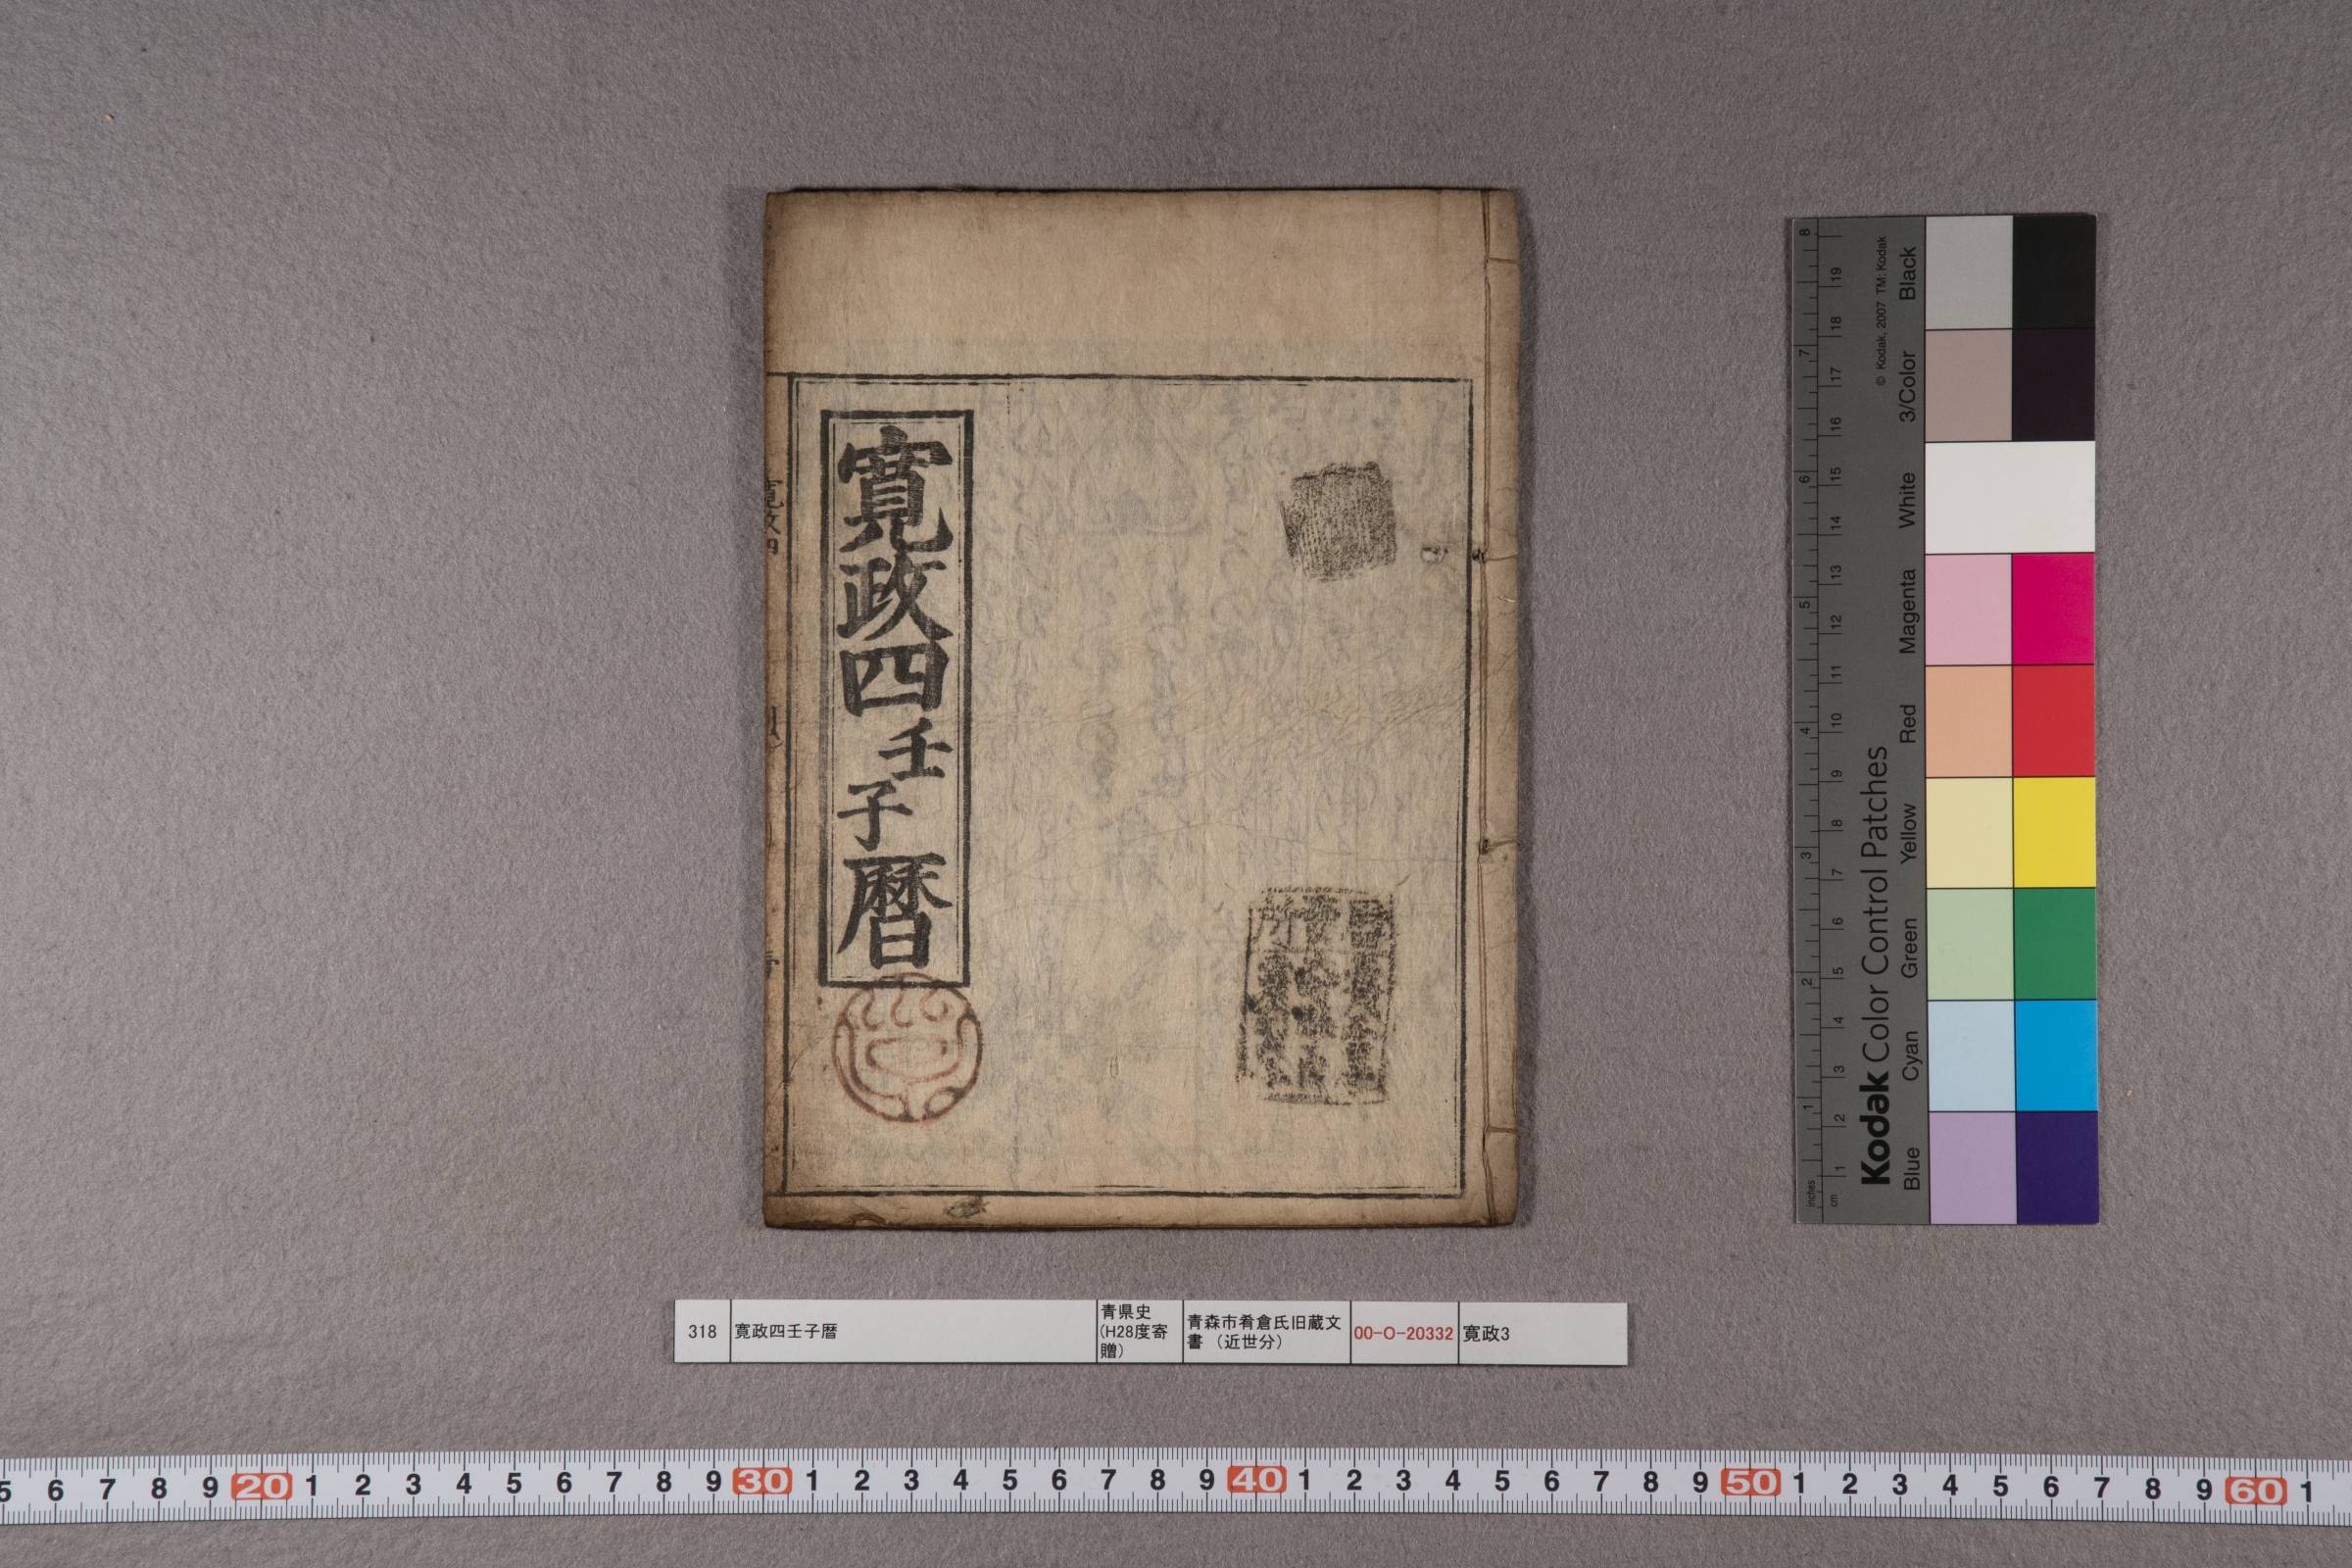 寛政四壬子暦
318
寛政四壬子暦
青県史
(H28度寄
贈)
青森市肴倉氏旧蔵文
書（近世分）
00-O-20332
寛政3
Kodak Color Control Patches
© Kodak, 2007 TM: Kodak
Blue Cyan Green Yellow Red Magenta White 3/Color Black
inches 1 2 3 4 5 6 7 8
cm 1 2 3 4 5 6 7 8 9 10 11 12 13 14 15 16 17 18 19
5 6 7 8 9 20 1 2 3 4 5 6 7 8 9 30 1 2 3 4 5 6 7 8 9 40 1 2 3 4 5 6 7 8 9 50 1 2 3 4 5 6 7 8 9 60 1